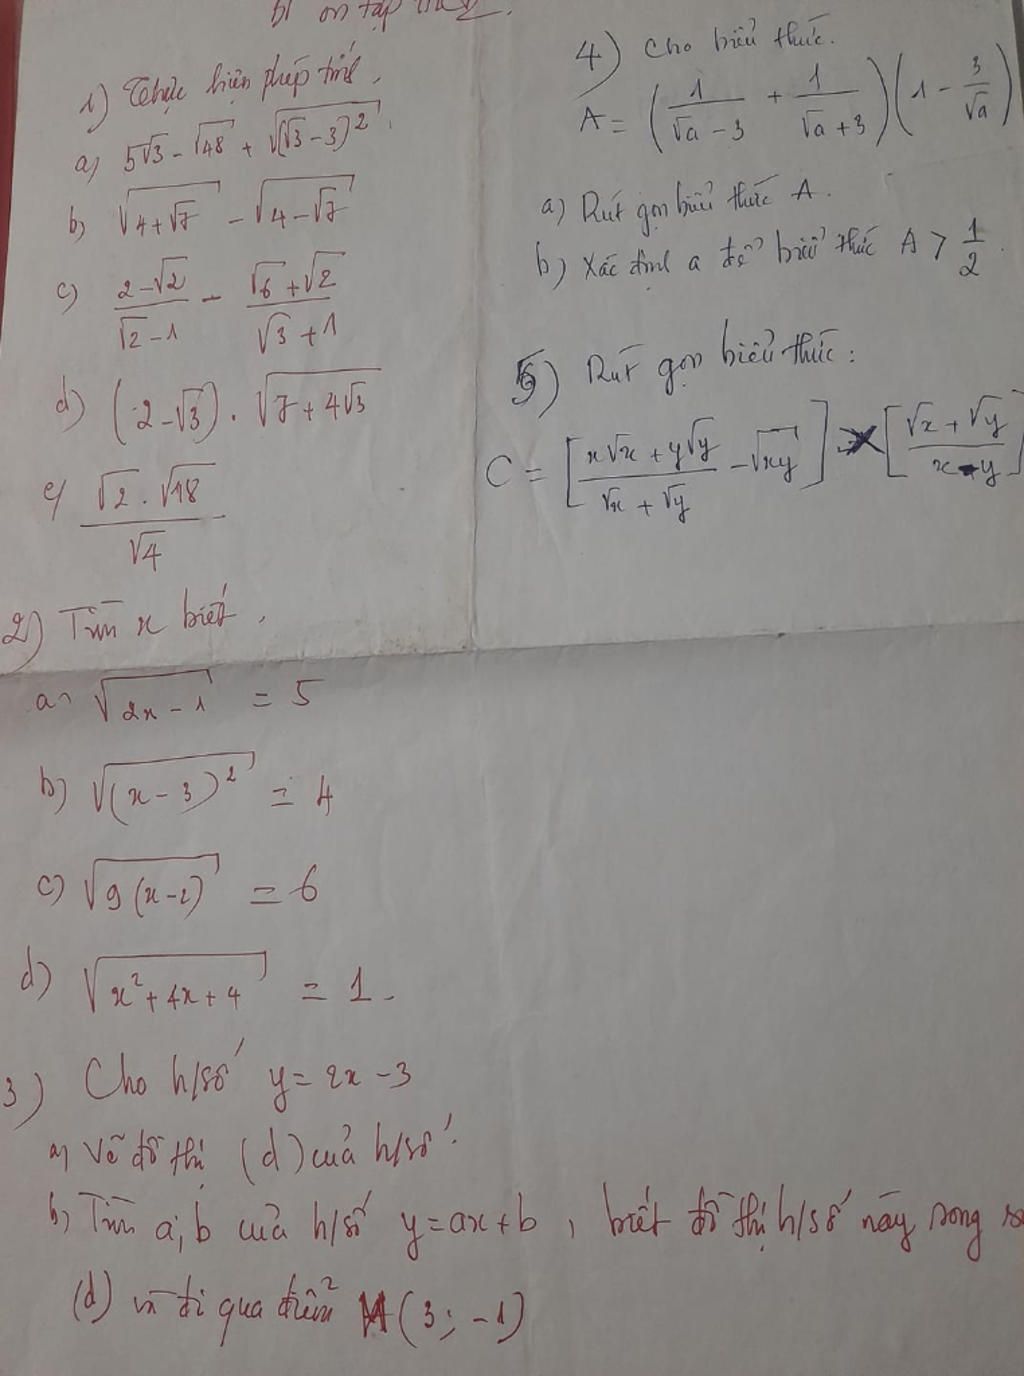 ôn tập
1) Thực hiện phép tính.
a) 5√3 - √48 + √((√3-3)²)
b) √(4+√7) - √(4-√7)
c) (2-√2)/(√2-1) - (√6+√2)/(√3+1)
d) (2-√3) . √(7+4√3)
e) (√2 . √18)/√4
2) Tìm x biết.
a) √(2x-1) = 5
b) √((x-3)²) = 4
c) √(9(x-2)) = 6
d) √(x²+4x+4) = 1.
3) Cho h/số y = 2x - 3
a) Vẽ đồ thị (d) của h/số.
b) Tìm a; b của h/số y = ax + b, biết đồ thị h/số này song
(d) và đi qua điểm M(3; -1)
4) Cho biểu thức.
A = (1/(√a - 3) + 1/(√a + 3))(1 - 3/√a)
a) Rút gọn biểu thức A.
b) Xác định a để biểu thức A > 1/2.
5) Rút gọn biểu thức:
C = [(x√x + y√y)/(√x + √y) - √xy] × [(√x + √y)/(x - y)]